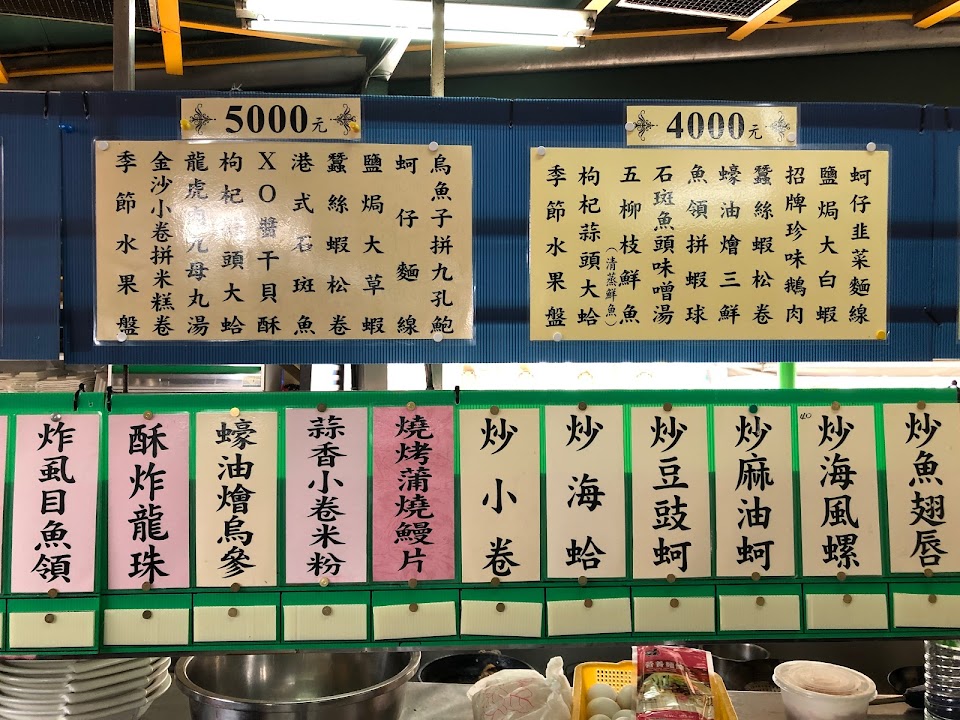 4000元
蚵仔韭菜麵線
鹽焗大白蝦
招牌珍味鵝肉
蠶絲蝦松卷
蠔油燴三鮮
魚領拼蝦球
石斑魚頭味噌湯
五柳枝鮮魚
(清蒸鮮魚)
枸杞蒜頭大蛤
季節水果盤
5000元
烏魚子拼九孔鮑
蚵仔麵線
鹽焗大草蝦
蠶絲蝦松卷
港式石斑魚
XO醬干貝酥
枸杞蒜頭大蛤
龍虎母丸湯
金沙小卷拼米糕卷
季節水果盤
炒魚翅唇
炒海風螺
炒麻油蚵
炒豆豉蚵
炒海蛤
炒小卷
燒烤蒲燒鰻片
蒜香小卷米粉
蠔油燴烏參
酥炸龍珠
炸虱目魚領